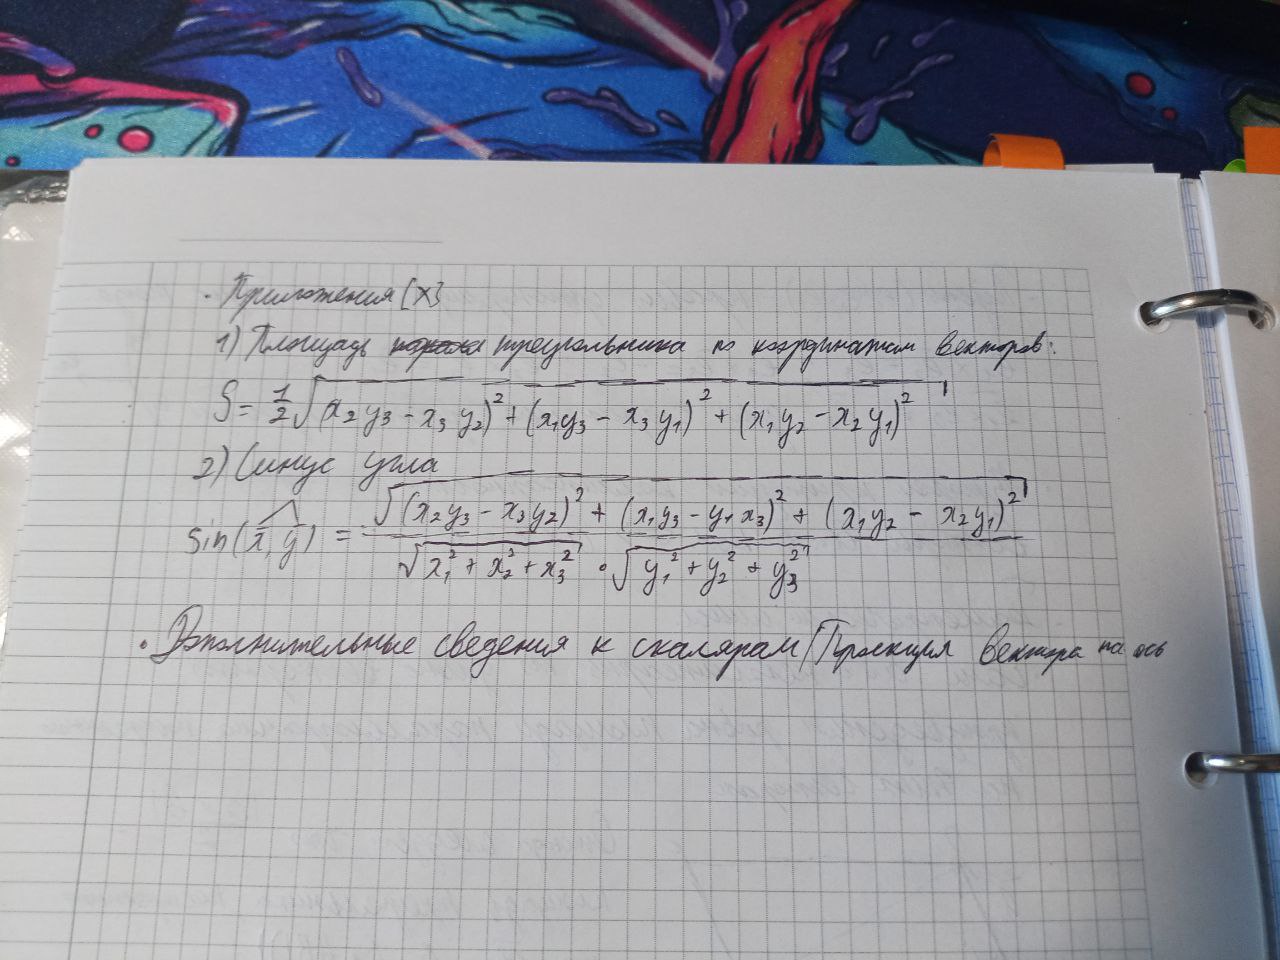 · Приложения [X]
1) Площадь треугольника по координатам векторов:
S = 1/2 √((x₂y₃ - x₃y₂)² + (x₁y₃ - x₃y₁)² + (x₁y₂ - x₂y₁)²)
2) Синус угла
sin(x̂, y) = √((x₂y₃ - x₃y₂)² + (x₁y₃ - y₁x₃)² + (x₁y₂ - x₂y₁)²) / (√(x₁² + x₂² + x₃²) · √(y₁² + y₂² + y₃²))
· Дополнительные сведения к скалярам/Проекция вектора на ось